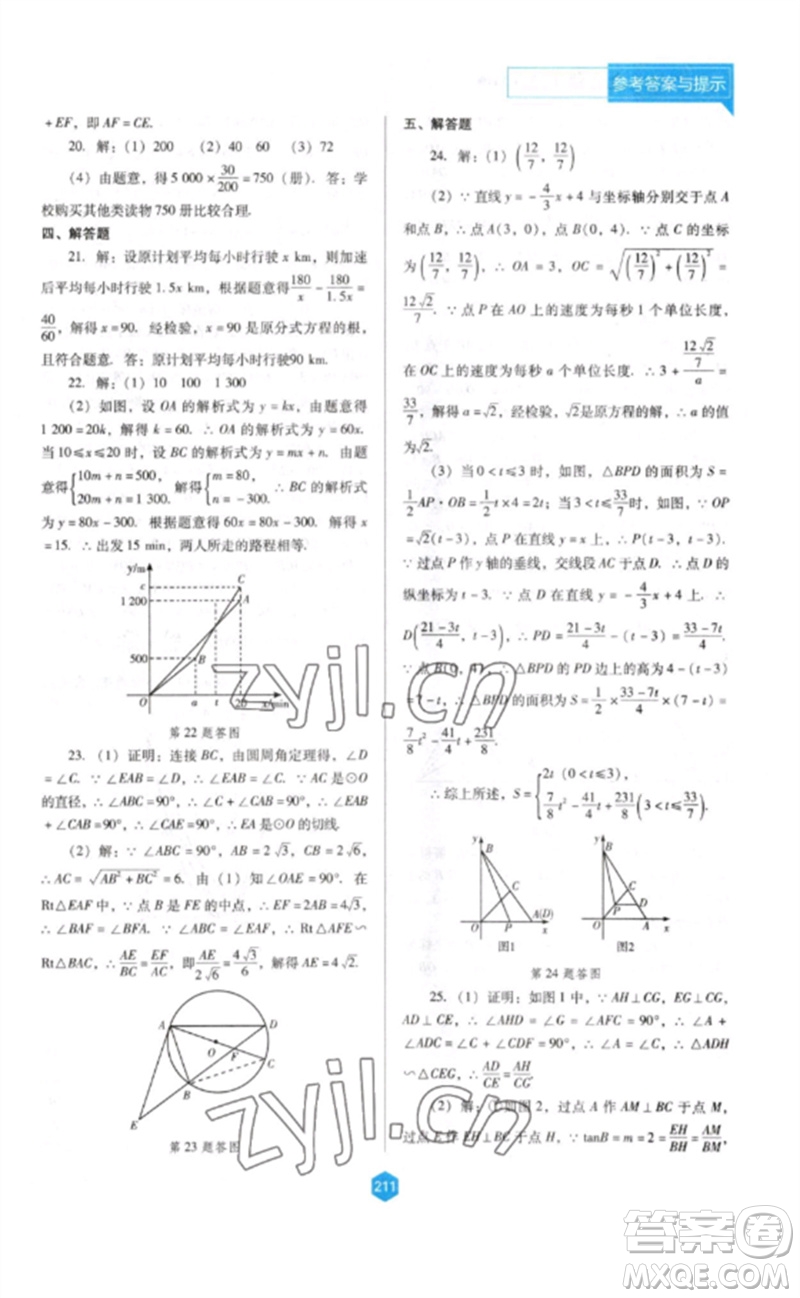 参考答案与提示
+EF，即 AF = CE.
20. 解：(1) 200 (2) 40 60 (3) 72
(4) 由题意，得 5 000 × 30/200 = 750（册）. 答：学
校购买其他类读物 750 册比较合理.
四、解答题
21. 解：设原计划平均每小时行驶 x km，则加速
后平均每小时行驶 1.5x km，根据题意得 180/x − 180/1.5x =
40/60，解得 x = 90. 经检验，x = 90 是原分式方程的根，
且符合题意. 答：原计划平均每小时行驶90 km.
22. 解：(1) 10 100 1 300
(2) 如图，设 OA 的解析式为 y = kx，由题意得
1 200 = 20k，解得 k = 60. ∴ OA 的解析式为 y = 60x.
当 10 ≤ x ≤ 20 时，设 BC 的解析式为 y = mx + n. 由题
意得 {10m + n = 500, 20m + n = 1 300. 解得 {m = 80, n = − 300. ∴ BC 的解析式
为 y = 80x − 300. 根据题意得 60x = 80x − 300. 解得 x
= 15. ∴ 出发 15 min，两人所走的路程相等.
y/m
c
C
1 200
A
500
B
O
a
t
20
x/min
第 22 题答图
23. (1) 证明：连接 BC，由圆周角定理得，∠D
= ∠C. ∵ ∠EAB = ∠D，∴ ∠EAB = ∠C. ∵ AC 是⊙O
的直径，∴ ∠ABC = 90°，∴ ∠C + ∠CAB = 90°，∴ ∠EAB
+ ∠CAB = 90°，∴ ∠CAE = 90°，∴ EA 是⊙O 的切线.
(2) 解：∵ ∠ABC = 90°，AB = 2√3，CB = 2√6，
∴ AC = √(AB² + BC²) = 6. 由 (1) 知∠OAE = 90°. 在
Rt△EAF 中，∵ 点 B 是 FE 的中点，∴ EF = 2AB = 4√3，
∴ ∠BAF = ∠BFA. ∵ ∠OAE = 90°，∴ Rt△AFE ∽
Rt△BAC，∴ AE/BC = EF/AC，即 AE/2√6 = 4√3/6，解得 AE = 4√2.
A
D
O
F
C
B
E
第 23 题答图
五、解答题
24. 解：(1) (12/7，12/7)
(2) ∵ 直线 y = − 4/3 x + 4 与坐标轴分别交于点 A
和点 B，∴ A(3，0)，点 B(0，4). ∵ 点 C 的坐标
为 (12/7，12/7)，∴ OA = 3，OC = √((12/7)² + (12/7)²) =
12√2/7. ∵ 点 P 在 AO 上的速度为每秒 1 个单位长度，
在 OC 上的速度为每秒 a 个单位长度. ∴ 3 + (12√2/7)/a =
33/7，解得 a = √2，经检验，√2是原方程的解，∴ a 的值
为√2.
(3) 当 0 < t ≤ 3 时，如图，△BPD 的面积为 S =
1/2 AP · OB = 1/2 t × 4 = 2t；当 3 < t ≤ 33/7时，如图，∵ OP
= √2(t − 3) = √2t − 3√2. ∴ 点 P(t − 3，t − 3).
∵ 过点 P 作 y 轴的垂线，交线段 AC 于点 D. ∴ 点 D 的
纵坐标为 t − 3. ∵ 点 D 在直线 y = − 4/3 x + 4 上. ∴
D((21 − 3t)/4，t − 3). ∴ PD = (21 − 3t)/4 − (t − 3) = (33 − 7t)/4.
∵ 点 B(0，4)，∴ △BPD 的 PD 边上的高为 4 − (t − 3)
= 7 − t，∴ △BPD 的面积为 S = 1/2 × (33 − 7t)/4 × (7 − t) =
7/8 t² − 41/4 t + 231/8.
∴ 综上所述，S = {2t (0 < t ≤ 3), 7/8 t² − 41/4 t + 231/8 (3 < t ≤ 33/7).
y
B
C
O
P
A(D)
x
图1
y
B
C
P
D
O
A
x
图2
第 24 题答图
25. (1) 证明：如图 1 中，∵ AH⊥CG，EG⊥CG，
AD⊥CE，∴ ∠AHD = ∠G = ∠AFC = 90°，∴ ∠A +
∠ADF = ∠C + ∠CDF = 90°，∴ ∠A = ∠C，∴ △ADH
∽ △CEG，∴ AD/CE = AH/CG.
(2) 解：①如图 2，过点 A 作 AM⊥BD 于点 M，
过点 E 作 EH⊥BC 于点 H，∵ tanB = m = 2 = EH/BH = AM/BM，
211
zyjl.cn
zyjl.cn
答案卷
MXQE.COM